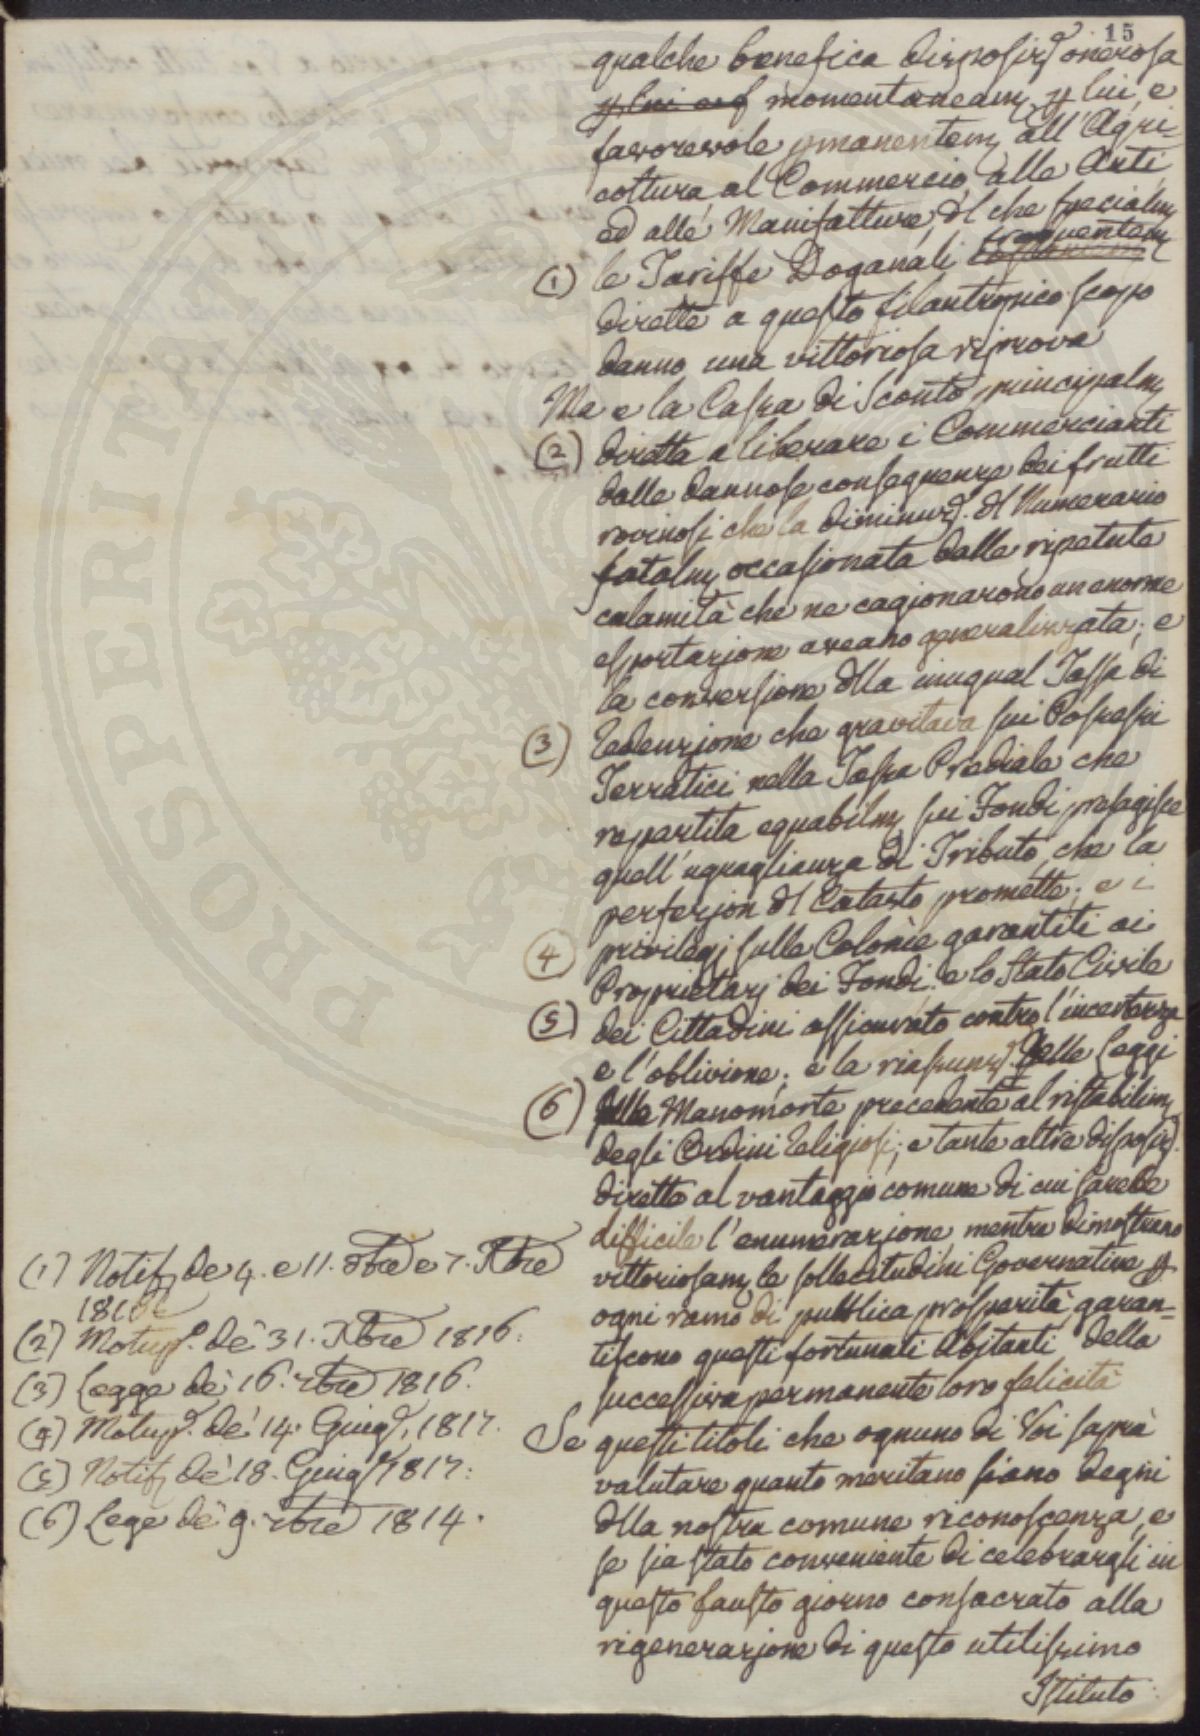 15
qualche benefica disposizẽ onerosa
p lui ed momentaneamẽ p lui, e
favorevole pmanentemẽ all'Agri-
coltura al Commercio, alle Arti
ed alle Manifatture, dl che specialmẽ
frequentemẽ
(1) le Tariffe Doganali
dirette a questo filantropico scopo
danno una vittoriosa riprova
Ma e la Cassa di Sconto principalmẽ
(2) diretta a liberare i Commercianti
dalle dannose conseguenze dei frutti
rovinosi che la diminuzẽ. dl Numerario
fatalmẽ occasionata dalle ripetute
calamità che ne cagionarono un enorme
esportazione aveano generalizzata; e
la conversione dlla inugual Tassa di
(3) Redenzione che gravitava sui Possessi
Terratici nella Tassa Prediale che
repartita equabilmẽ sui Fondi presagisce
quell'uguaglianza di Tributo, che la
perfezion dl Catasto promette; e i
(4) privilegj sulle Colonie garantiti ai
Proprietarj dei Fondi. e lo Stato Civile
(5) dei Cittadini assicurato contro l'incertezza
e l'oblivione; e la riassunzẽ. delle Leggi
(6) sulle Manomorte precedente al ristabilimẽ
degli Ordini Religiosi; e tante altre disposizẽ.
dirette al vantaggio comune di cui sarebbe
difficile l'enumerazione mentre dimostrano
vittoriosamẽ le sollecitudini Governative p
ogni ramo di pubblica prosperità, garan=
tiscono questi fortunati Abitanti della
successiva permanente loro felicità
Se questi titoli che ognuno di Voi saprà
valutare quanto meritano siano degni
dlla nostra comune riconoscenza, e
se sia stato conveniente di celebrargli in
questo fausto giorno consacrato alla
rigenerazione di questo utilissimo
Istituto
(1) Notifẽ de 4. e 11. 8bre e 7. Xbre
1816
(2) Motupr. de' 31. Xbre 1816.
(3) Legge de' 16. 7bre 1816.
(4) Motupr. de' 14. Giugẽ. 1817.
(5) Notifẽ de' 18. Giugẽ 1817.
(6) Lege de' 9. 7bre 1814.
PROSPERITATI PUB